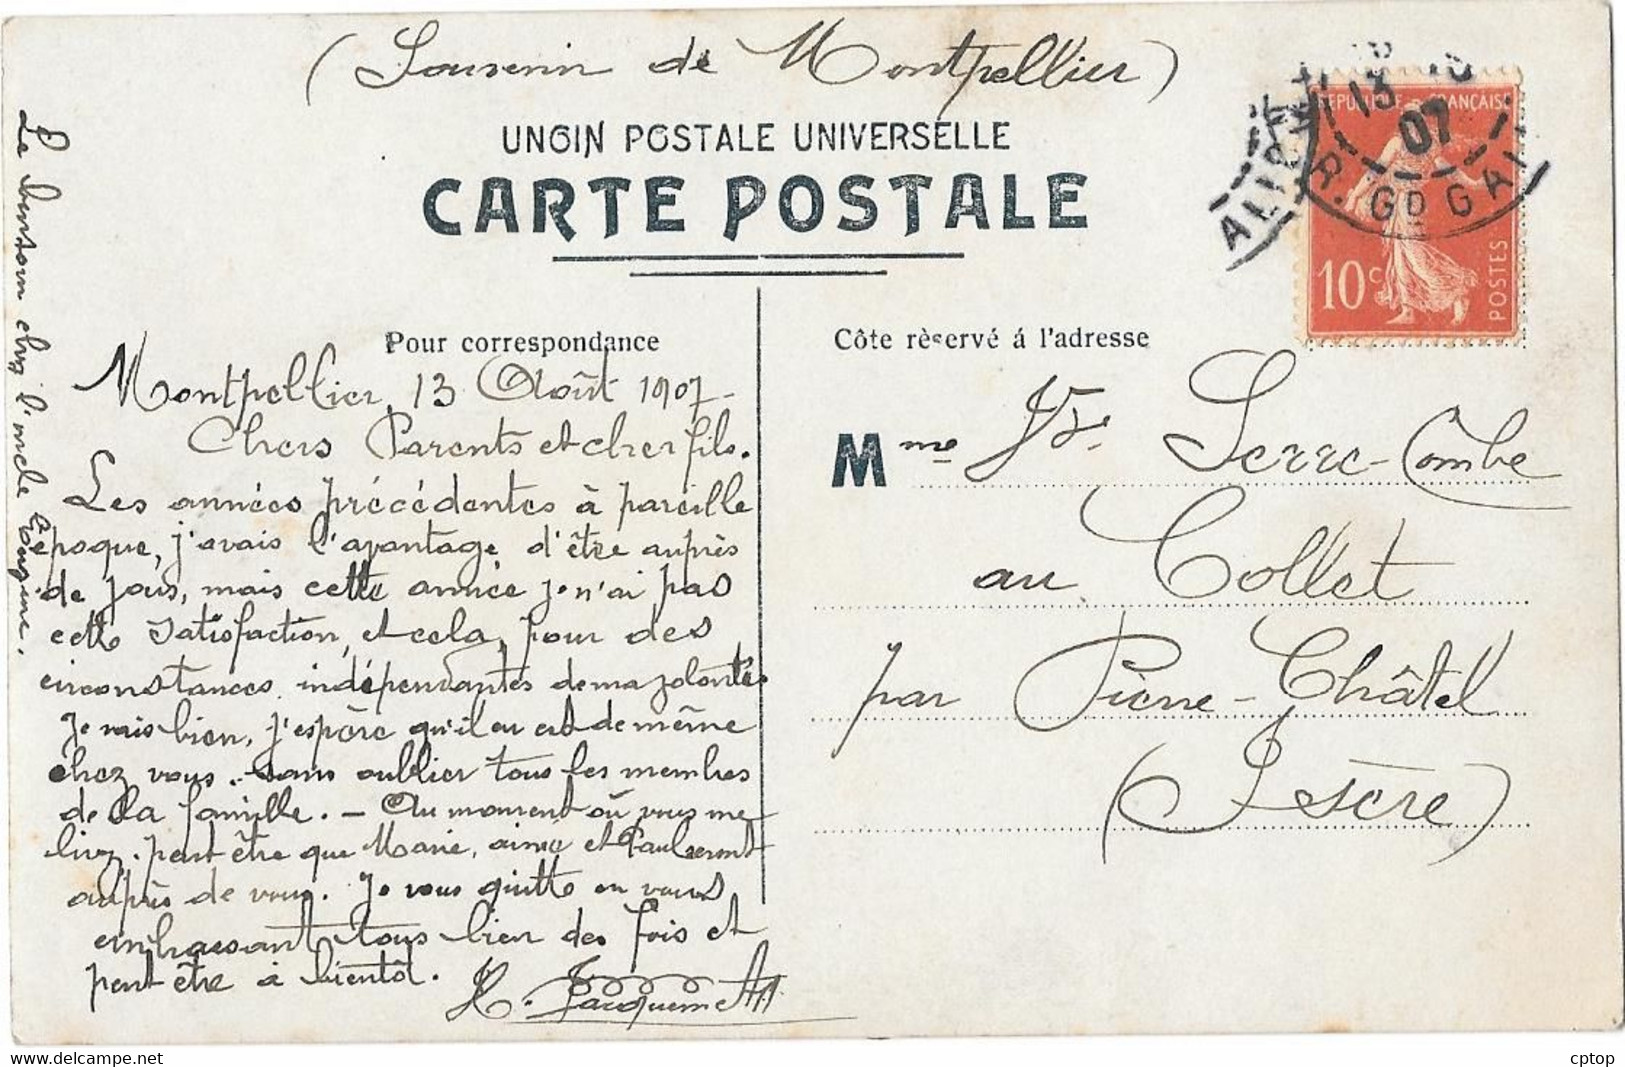 (Souvenir de Montpellier)
UNOIN POSTALE UNIVERSELLE
CARTE POSTALE
REPUBLIQUE FRANÇAISE
10c
POSTES
13
07
GD GA
Pour correspondance
Côte rèservé á l'adresse
Montpellier, 13 Août 1907-
Chers Parents et cher fils.
Les années précédentes à pareille
époque, j'avais l'avantage d'être auprès
de vous, mais cette année je n'ai pas
cette satisfaction, et cela, pour des
circonstances indépendantes de ma volonté.
Je vais bien, j'espère qu'il en est de même
chez vous. sans oublier tous les membres
de la famille. - Au moment où vous me
lirez. peut être que Marie, aimé et Paul seront
auprès de vous. Je vous quitte en vous
embrassant tous bien des fois et
peut être à bientôt.
H. Jacquemet
Le bonjour chez l'oncle Eugène.
Mme Vve Serre-Combe
au Collet
par Pierre-Châtel
(Isère)
cptop